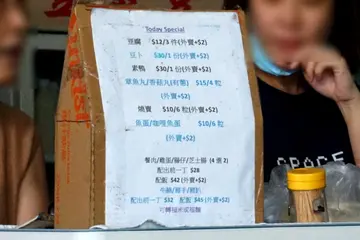 Today Special
豆腐 $12/3 件(外賣+$2)
豆卜 $30/1 份(外賣+$2)
素鴨 $30/1 份(外賣+$2)
章魚丸/香菇丸(有蔥) $15/4 粒
(外賣+$2)
燒賣 $10/6 粒(外賣+$2)
魚蛋/咖喱魚蛋 $10/6 粒
(外賣+$2)
餐肉/雞蛋/腸仔/芝士腸 (4 選 2)
配出前一丁 $28
配飯 $42 (外賣+$2)
配出前一丁 $32 配飯 $45 (外賣+$2)
SPACE